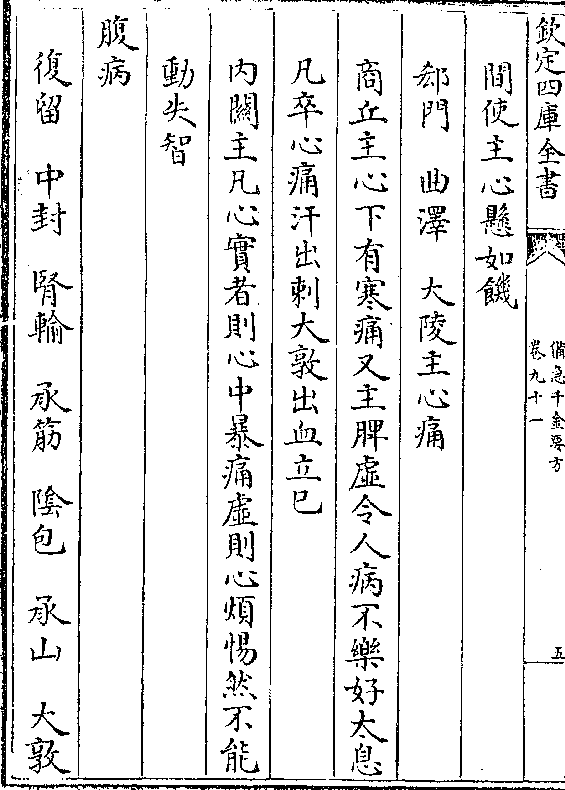 欽定四庫全書
備急千金要方
卷九十一
五
間使主心懸如饑
郄門　曲澤　大陵主心痛
商丘主心下有寒痛又主脾虛令人病不樂好太息
凡卒心痛汗出刺大敦出血立已
内關主凡心實者則心中暴痛虛則心煩惕然不能
動失智
腹病
復留　中封　腎輸　承筋　陰包　承山　大敦